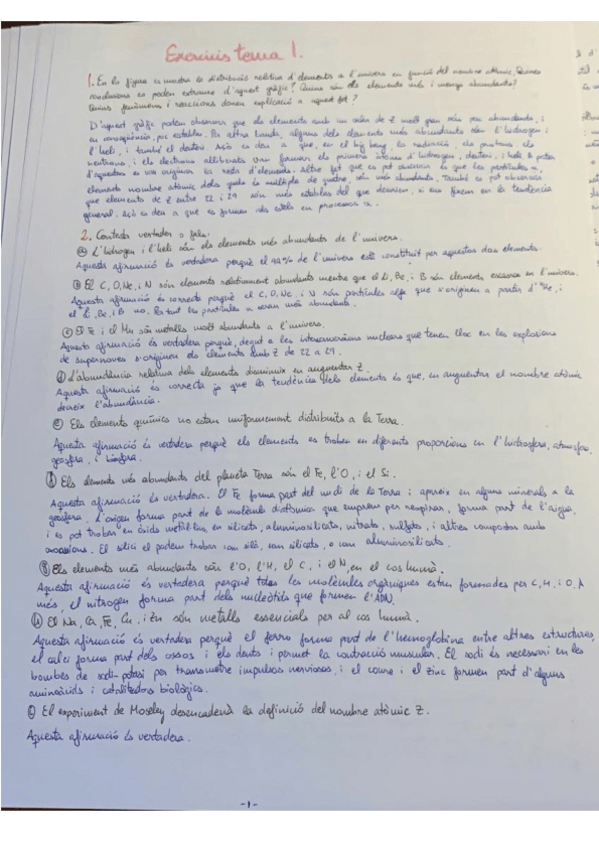 Exercicis tema 1.
1. En la figura es mostra la distribució relativa d'elements a l'univers en funció del nombre atòmic. Quines
conclusions es poden extraure d'aquest gràfic? Quins són els elements més i menys abundants?
Quins fenòmens i reaccions donen explicació a aquest fet?
D'aquest gràfic podem observar que els elements amb un valor de Z molt gran són poc abundants, i
en conseqüència, poc estables. Per altra banda, alguns dels elements més abundants són l'hidrogen i
l'heli, i també el deuteri. Això es deu a que, en el big bang, la radiació, els protons, els
neutrons, i els electrons alliberats van formar els primers àtoms d'hidrogen, deuteri, i heli. A partir
d'aquestos es va originar la resta d'elements. Altre fet que es pot observar és que les partícules α,
elements nombre atòmic dels quals és múltiple de quatre, són més abundants. També es pot observar
que elements de Z entre 22 i 29 són més estables del que deurien, si ens fixem en la tendència
general. Açò es deu a que es formen als estels en processos α.
2. Contesta vertader o fals:
a) L'hidrogen i l'heli són els elements més abundants de l'univers.
Aquesta afirmació és vertadera perquè el 99% de l'univers està constituït per aquestos dos elements.
b) El C, O, Ne, i N són elements relativament abundants mentre que el Li, Be, i B són elements escassos en l'univers.
Aquesta afirmació és correcta perquè el C, O, Ne, i N són partícules alfa que s'originen a partir d' He, i
el Li, Be, i B no. Per tant les partícules α seran més abundants.
c) El Fe i el Mn són metalls molt abundants a l'univers.
Aquesta afirmació és vertadera perquè, degut a les interconversions nuclears que tenen lloc en les explosions
de supernoves s'originen els elements amb Z de 22 a 29.
d) L'abundància relativa dels elements disminuix en augmentar Z.
Aquesta afirmació és correcta ja que la tendència dels elements és que, en augmentar el nombre atòmic
decreix l'abundància.
e) Els elements químics no estan uniformement distribuïts a la Terra.
Aquesta afirmació és vertadera perquè els elements es troben en diferents proporcions en l'hidrosfera, atmosfera,
geosfera, i biosfera.
f) Els elements més abundants del planeta Terra són el Fe, l'O, i el Si.
Aquesta afirmació és vertadera. El Fe forma part del nucli de la Terra i apareix en alguns minerals a la
geosfera. L'oxigen forma part de la molècula diatòmica que emprem per respirar, forma part de l'aigua,
i es pot trobar en òxids metàl·lics, en silicats, aluminosilicats, nitrats, sulfats, i altres compostos amb
oxoanions. El silici el podem trobar com sílice, com silicats, o com aluminosilicats.
g) Els elements més abundants són l'O, l'H, el C, i el N, en el cos humà.
Aquesta afirmació és vertadera perquè totes les molècules orgàniques estan formades per C, H, i O. A
més, el nitrogen forma part dels nucleòtids que formen l'ADN.
h) El Na, Ca, Fe, Cu, i Zn són metalls essencials per al cos humà.
Aquesta afirmació és vertadera perquè el ferro forma part de l'hemoglobina entre altres estructures,
el calci forma part dels ossos i els dents i permet la contracció muscular. El sodi és necessari en les
bombes de sodi-potasi per transmetre impulsos nerviosos, i el coure i el zinc formen part d'alguns
aminoàcids i catalitzadors biològics.
i) El experiment de Moseley desencadenà la definició del nombre atòmic Z.
Aquesta afirmació és vertadera.
-1-